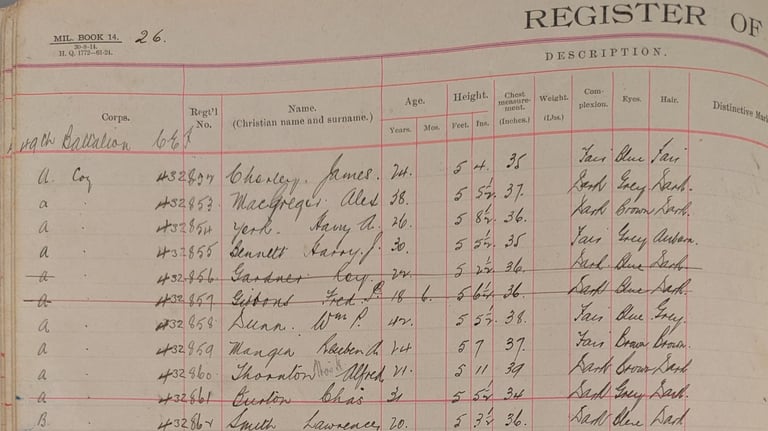 MIL. BOOK 14. 26.
30-9-14.
H. Q. 1772-61-24.
REGISTER OF
DESCRIPTION.
Corps. Regt'l No. Name. (Christian name and surname.) Age. Years. Mos. Height. Feet. Ins. Chest measurement. (Inches.) Weight. (Lbs.) Complexion. Eyes. Hair. Distinctive
49th Battalion C.E.F
A. Coy 432 Charley. James. 24. 5 4. 35 Fair Blue Fair
a 432853 MacGregor Alex 38. 5 5½. 37. Dark Grey Dark.
a 432854 York. Harry A. 26. 5 8½. 36. Dark Brown Dark.
a 432855 Bennett Harry. J. 30. 5 5½. 35 Fair Grey Auburn.
a 432856 Gardner 22. 5 2½. 36. Dark Blue Dark
a 432857 Gibbons Fred. P. 18 6. 5 6¼. 36. Dark Blue Dark.
a 432858 Dunn. Wm P. 42. 5 5½. 38. Fair Blue Grey.
a 432859 Mangin Reuben A. 24 5 7 37. Fair Brown Brown.
a 432860 Thornton Alfred 21. 5 11 39 Dark Brown Dark
a 432861 Burton Chas 31 5 5½ 34 Dark Grey Dark
B. 432862 Smith Lawrence 20. 5 3½ 36. Dark Blue Dark